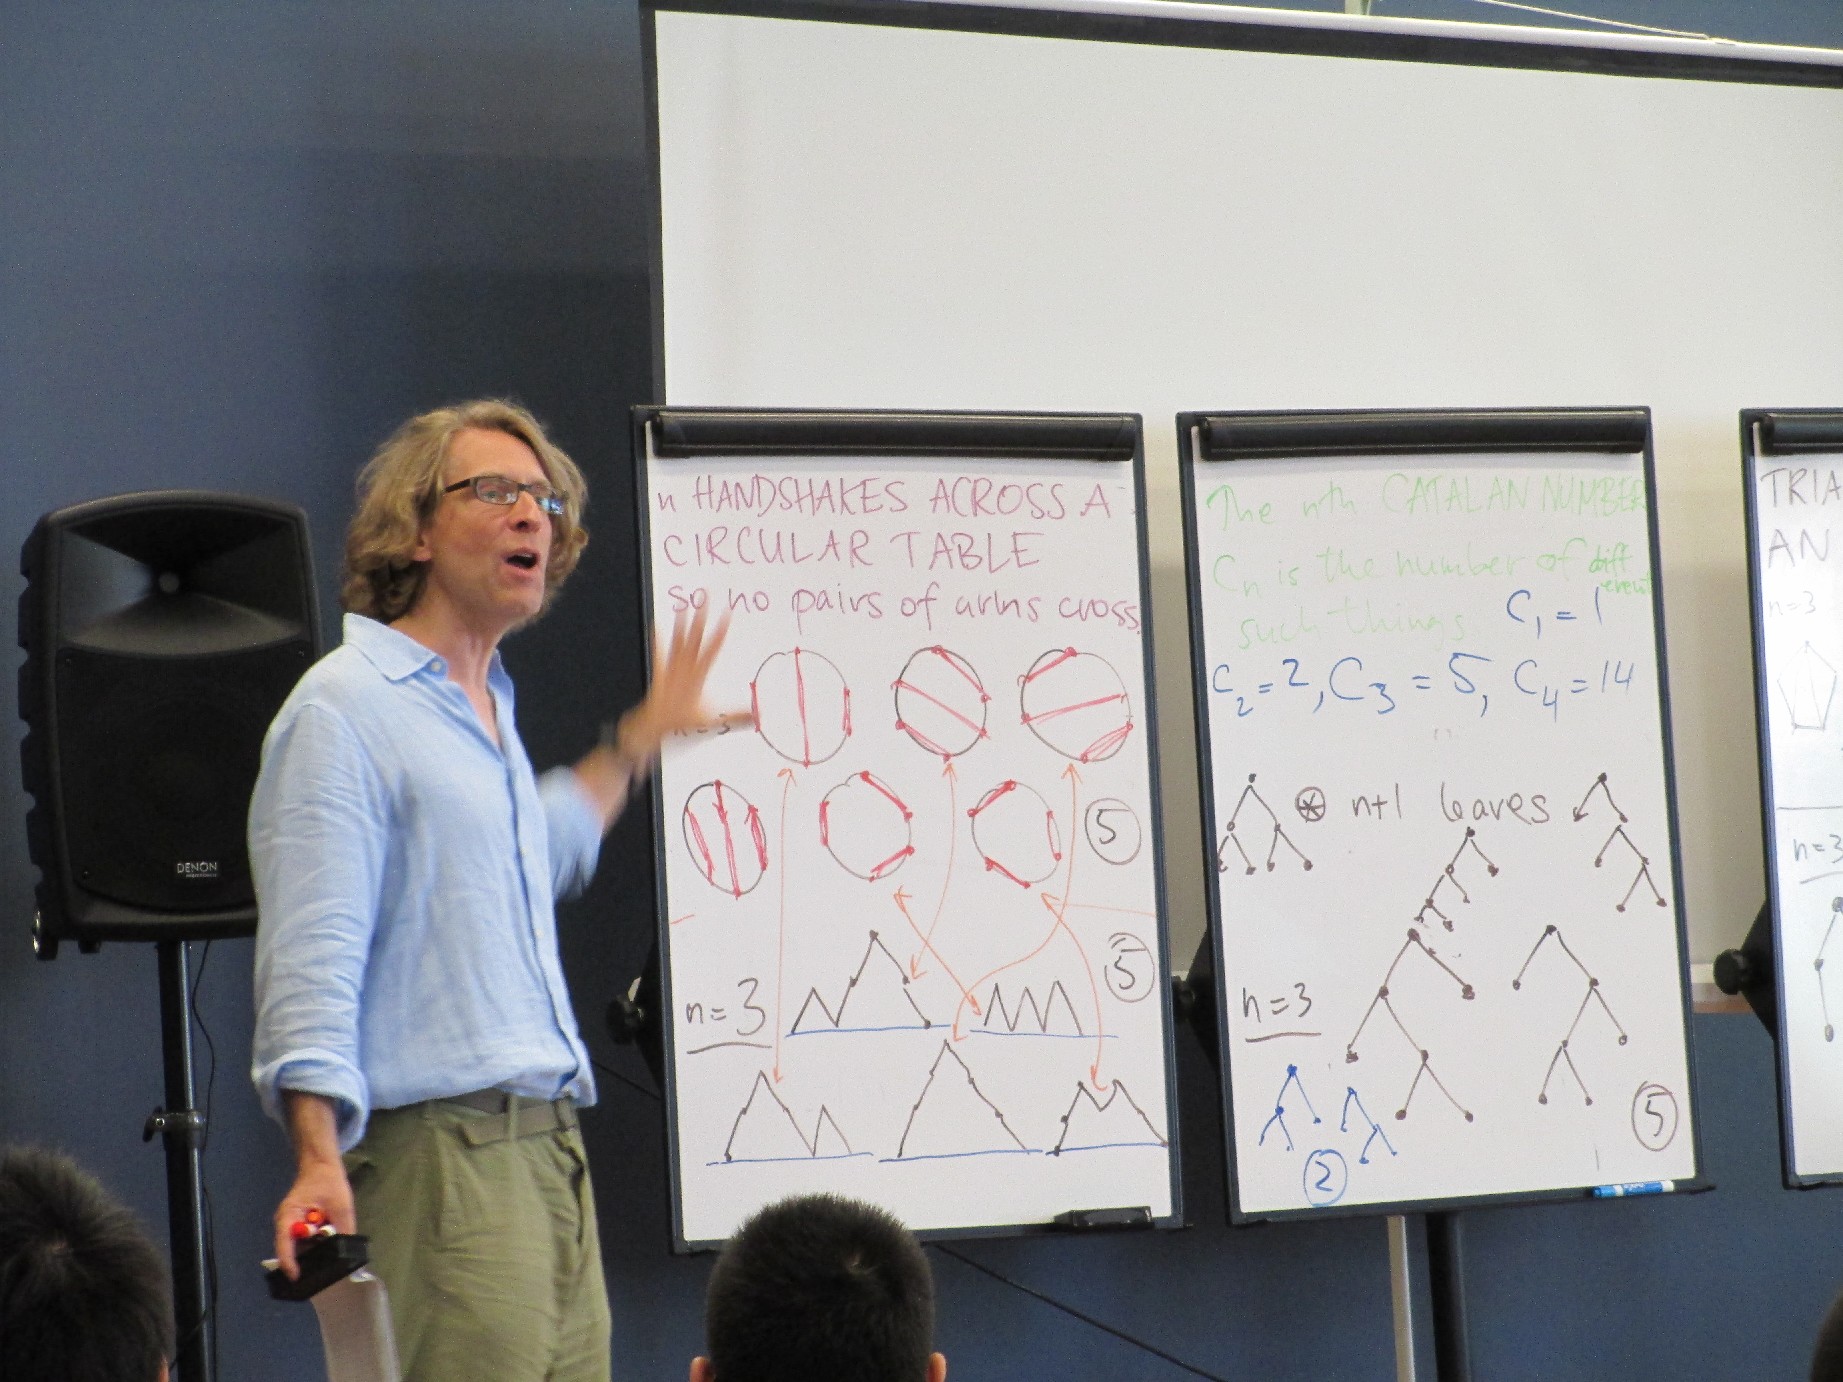 n HANDSHAKES ACROSS A
CIRCULAR TABLE
so no pairs of arms cross.
n=3
5
5
n=3
The nth CATALAN NUMBER
Cn is the number of different
such things. C1 = 1
C2=2, C3=5, C4=14
⊛ n+1 leaves
n=3
2
5
TRIA
AN
n=3
n=3
DENON